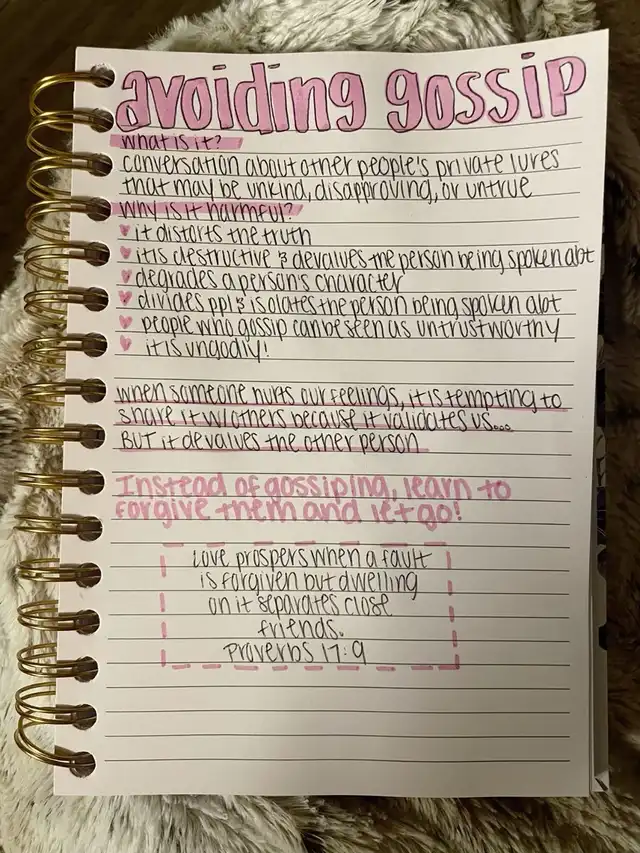 avoiding gossip
what is it?
conversation about other people's private lives
that may be unkind, disapproving, or untrue
why is it harmful?
it distorts the truth
it is destructive & devalues the person being spoken abt
degrades a person's character
divides ppl & isolates the person being spoken abt
people who gossip can be seen as untrustworthy
it is ungodly!
when someone hurts our feelings, it is tempting to
share it w/ others because it validates us...
But it devalues the other person
Instead of gossiping, learn to
forgive them and let go!
Love prospers when a fault
is forgiven but dwelling
on it separates close
friends.
Proverbs 17:9